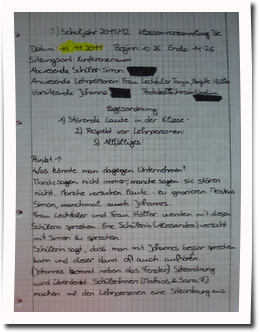 Schuljahr 2011/12 Klassenversammlung 3c
Datum: 11.11.2011 Beginn: 10:25 Ende: 11:25
Sitzungsort: Konferenzraum
Abwesende Schüler: Simon
Anwesende Lehrpersonen: Frau
Vorsitzende Johanna
Tagesordnung
1) Störende Laute in der Klasse
2) Respekt vor Lehrpersonen
3) Allfälliges
Punkt 1
Was könnte man dagegen unternehmen?
Manche sagen nicht immer, manche sagen sie stören
nicht. Manche versuchen Laute zu ignorieren. Meistens
Simon, manchmal auch Johannes.
Frau und Frau Höller werden mit diesen
Schülern sprechen. Eine Schülerin (Alessandra) versucht
mit Simon zu sprechen.
Schülerin sagt, dass man mit Johannes besser sprechen
kann und dieser dann oft auch aufhört.
(Johannes kommt neben das Fenster) Sitzordnung
wird überdenkt. SchülerInnen (Mathias &
machen mit den Lehrpersonen eine Sitzordnung aus.